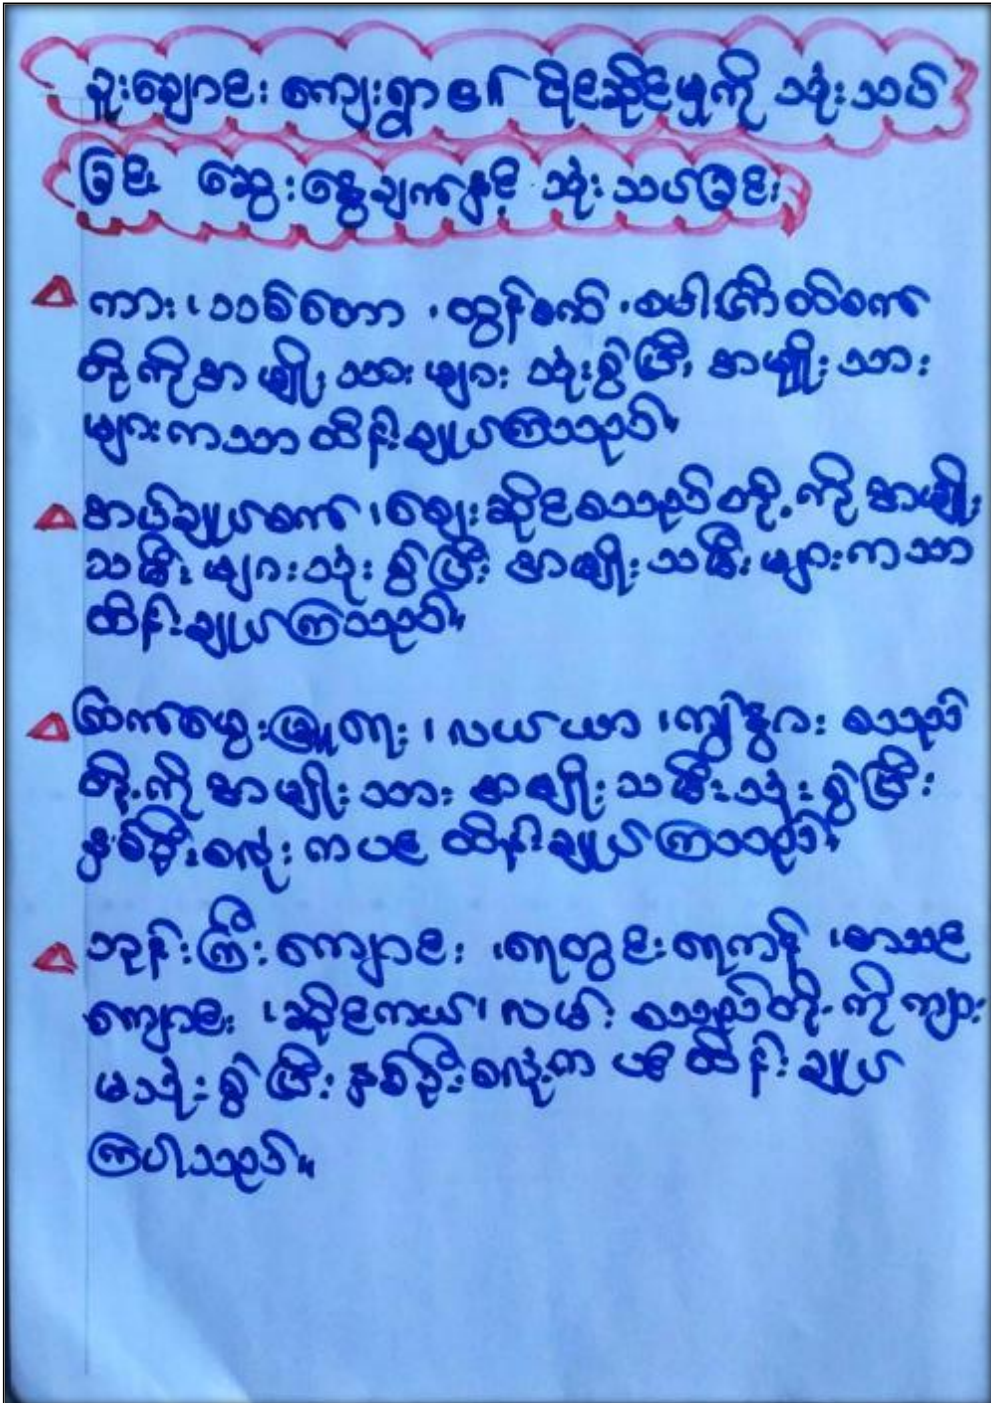 ဥူးချောင်း ကျေးရွာ၏ ပိုင်ဆိုင်မှုကို သုံးသပ်
ခြင်း ဆွေးနွေးချက်နှင့် သုံးသပ်ခြင်း
ကား ၊ သစ်တော ၊ ထွန်စက် ၊
တို့ကိုအမျိုးသားများ သုံးစွဲပြီး အမျိုးသား
များကသာထိန်းချုပ်ကြသည်။
အပ်ချုပ်စက် ၊ ဈေးဆိုင်စသည်တို့ကို အမျိုး
သမီးများသုံးစွဲပြီး အမျိုးသမီးများကသာ
ထိန်းချုပ်ကြသည်။
တိရစ္ဆာန်မွေးမြူရေး ၊ လယ်ယာ ၊ ကျွဲနွား စသည်
တို့ကို အမျိုးသား အမျိုးသမီးသုံးစွဲပြီး
နှစ်ဦးစလုံး ကပင် ထိန်းချုပ်ကြသည်။
ဘုန်းကြီးကျောင်း ၊ ရေတွင်းရေကန် ၊ စာသင်
ကျောင်း ၊ ဆိုင်ကယ် ၊ လမ်း စသည်တို့ကို ကျား
မသုံးစွဲပြီး နှစ်ဦးစလုံးက ပင် ထိန်းချုပ်
ကြပါသည်။